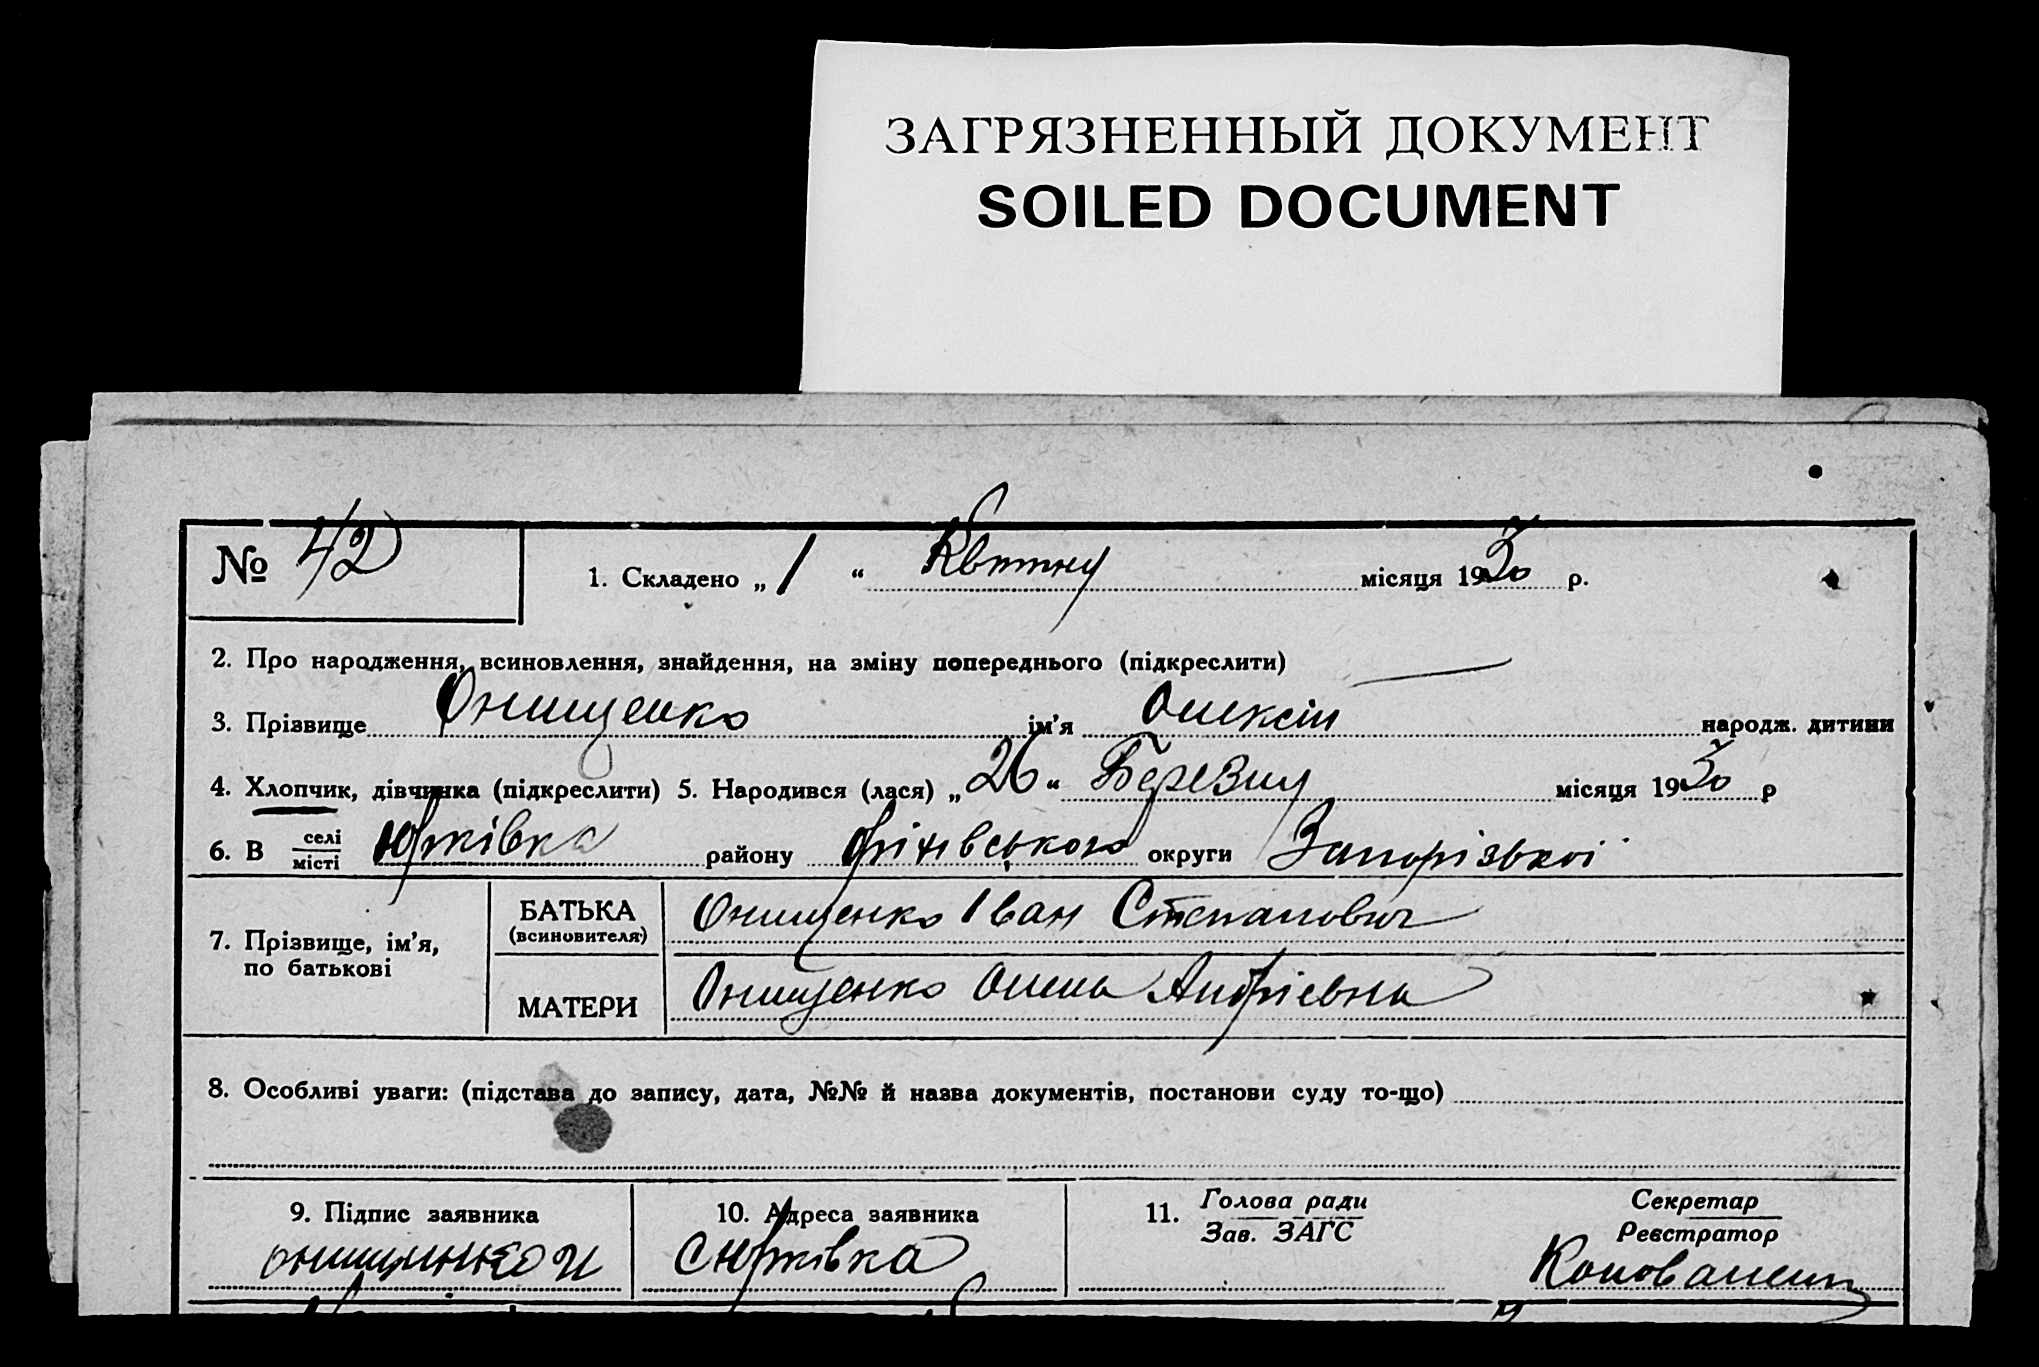 ЗАГРЯЗНЕННЫЙ ДОКУМЕНТ
SOILED DOCUMENT
№ 42
1. Складено „ 1 “ Квітня місяця 1930 р.
2. Про народження, всиновлення, знайдення, на зміну попереднього (підкреслити)
3. Прізвище Онищенко ім’я Олексій народж. дитини
4. Хлопчик, дівчинка (підкреслити) 5. Народився (лася) „ 26 “ Березня місяця 1930 р
6. В селі / місті Юрківка району округи Запорізької
7. Прізвище, ім’я, по батькові
БАТЬКА (всиновителя) Онищенко Іван Степанович
МАТЕРИ Онищенко Олена Андрієвна
8. Особливі уваги: (підстава до запису, дата, №№ й назва документів, постанови суду то-що)
9. Підпис заявника 10. Адреса заявника 11. Голова ради Секретар
Зав. ЗАГС Реєстратор
с Юрківка